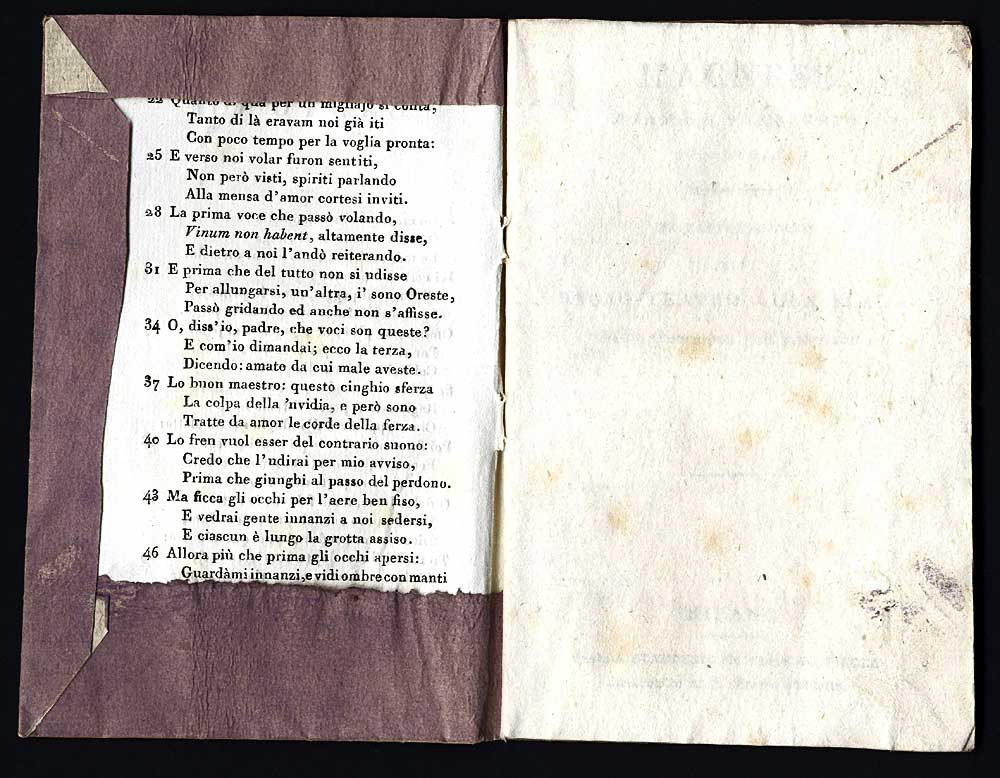 22 Quanto di qua per un migliajo si conta,
Tanto di là eravam noi già iti
Con poco tempo per la voglia pronta:
25 E verso noi volar furon sentiti,
Non però visti, spiriti parlando
Alla mensa d'amor cortesi inviti.
28 La prima voce che passò volando,
Vinum non habent, altamente disse,
E dietro a noi l'andò reiterando.
31 E prima che del tutto non si udisse
Per allungarsi, un'altra, i' sono Oreste,
Passò gridando ed anche non s'affisse.
34 O, diss'io, padre, che voci son queste?
E com'io dimandai; ecco la terza,
Dicendo: amate da cui male aveste.
37 Lo buon maestro: questo cinghio sferza
La colpa della 'nvidia, e però sono
Tratte da amor le corde della ferza.
40 Lo fren vuol esser del contrario suono:
Credo che l'udirai per mio avviso,
Prima che giunghi al passo del perdono.
43 Ma ficca gli occhi per l'aere ben fiso,
E vedrai gente innanzi a noi sedersi,
E ciascun è lungo la grotta assiso.
46 Allora più che prima gli occhi apersi:
Guardàmi innanzi, e vidi ombre con manti